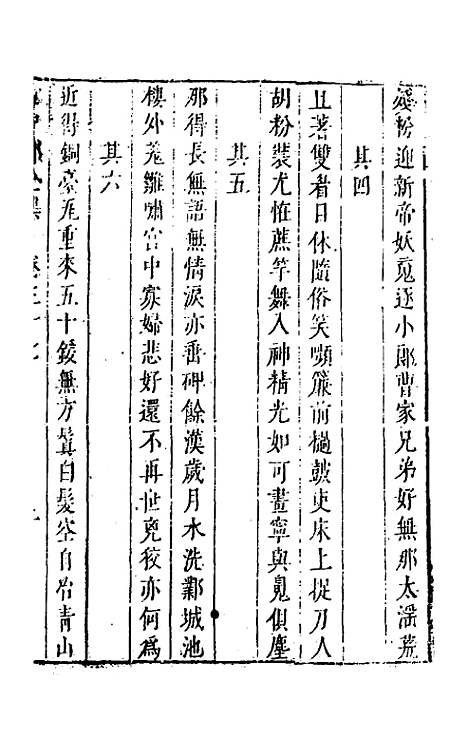 殘粉迎新帝妖䰟逐小郎曹家兄弟好無那太滛荒
其四
且著雙者目休隨俗笑嚬簾前撾皷吏床上捉刀人
胡粉裝尤恠蔗竿舞入神精光如可畫寧與䰟俱塵
其五
那得長無語無情淚亦垂碑餘漢歲月水洗鄴城池
樓外羌雛嘯宫中寡婦悲好還不再世兒狡亦何為
其六
近得銅臺重來五十鍰無方鬒白髮空自冶青山
中郎全集 卷三十七